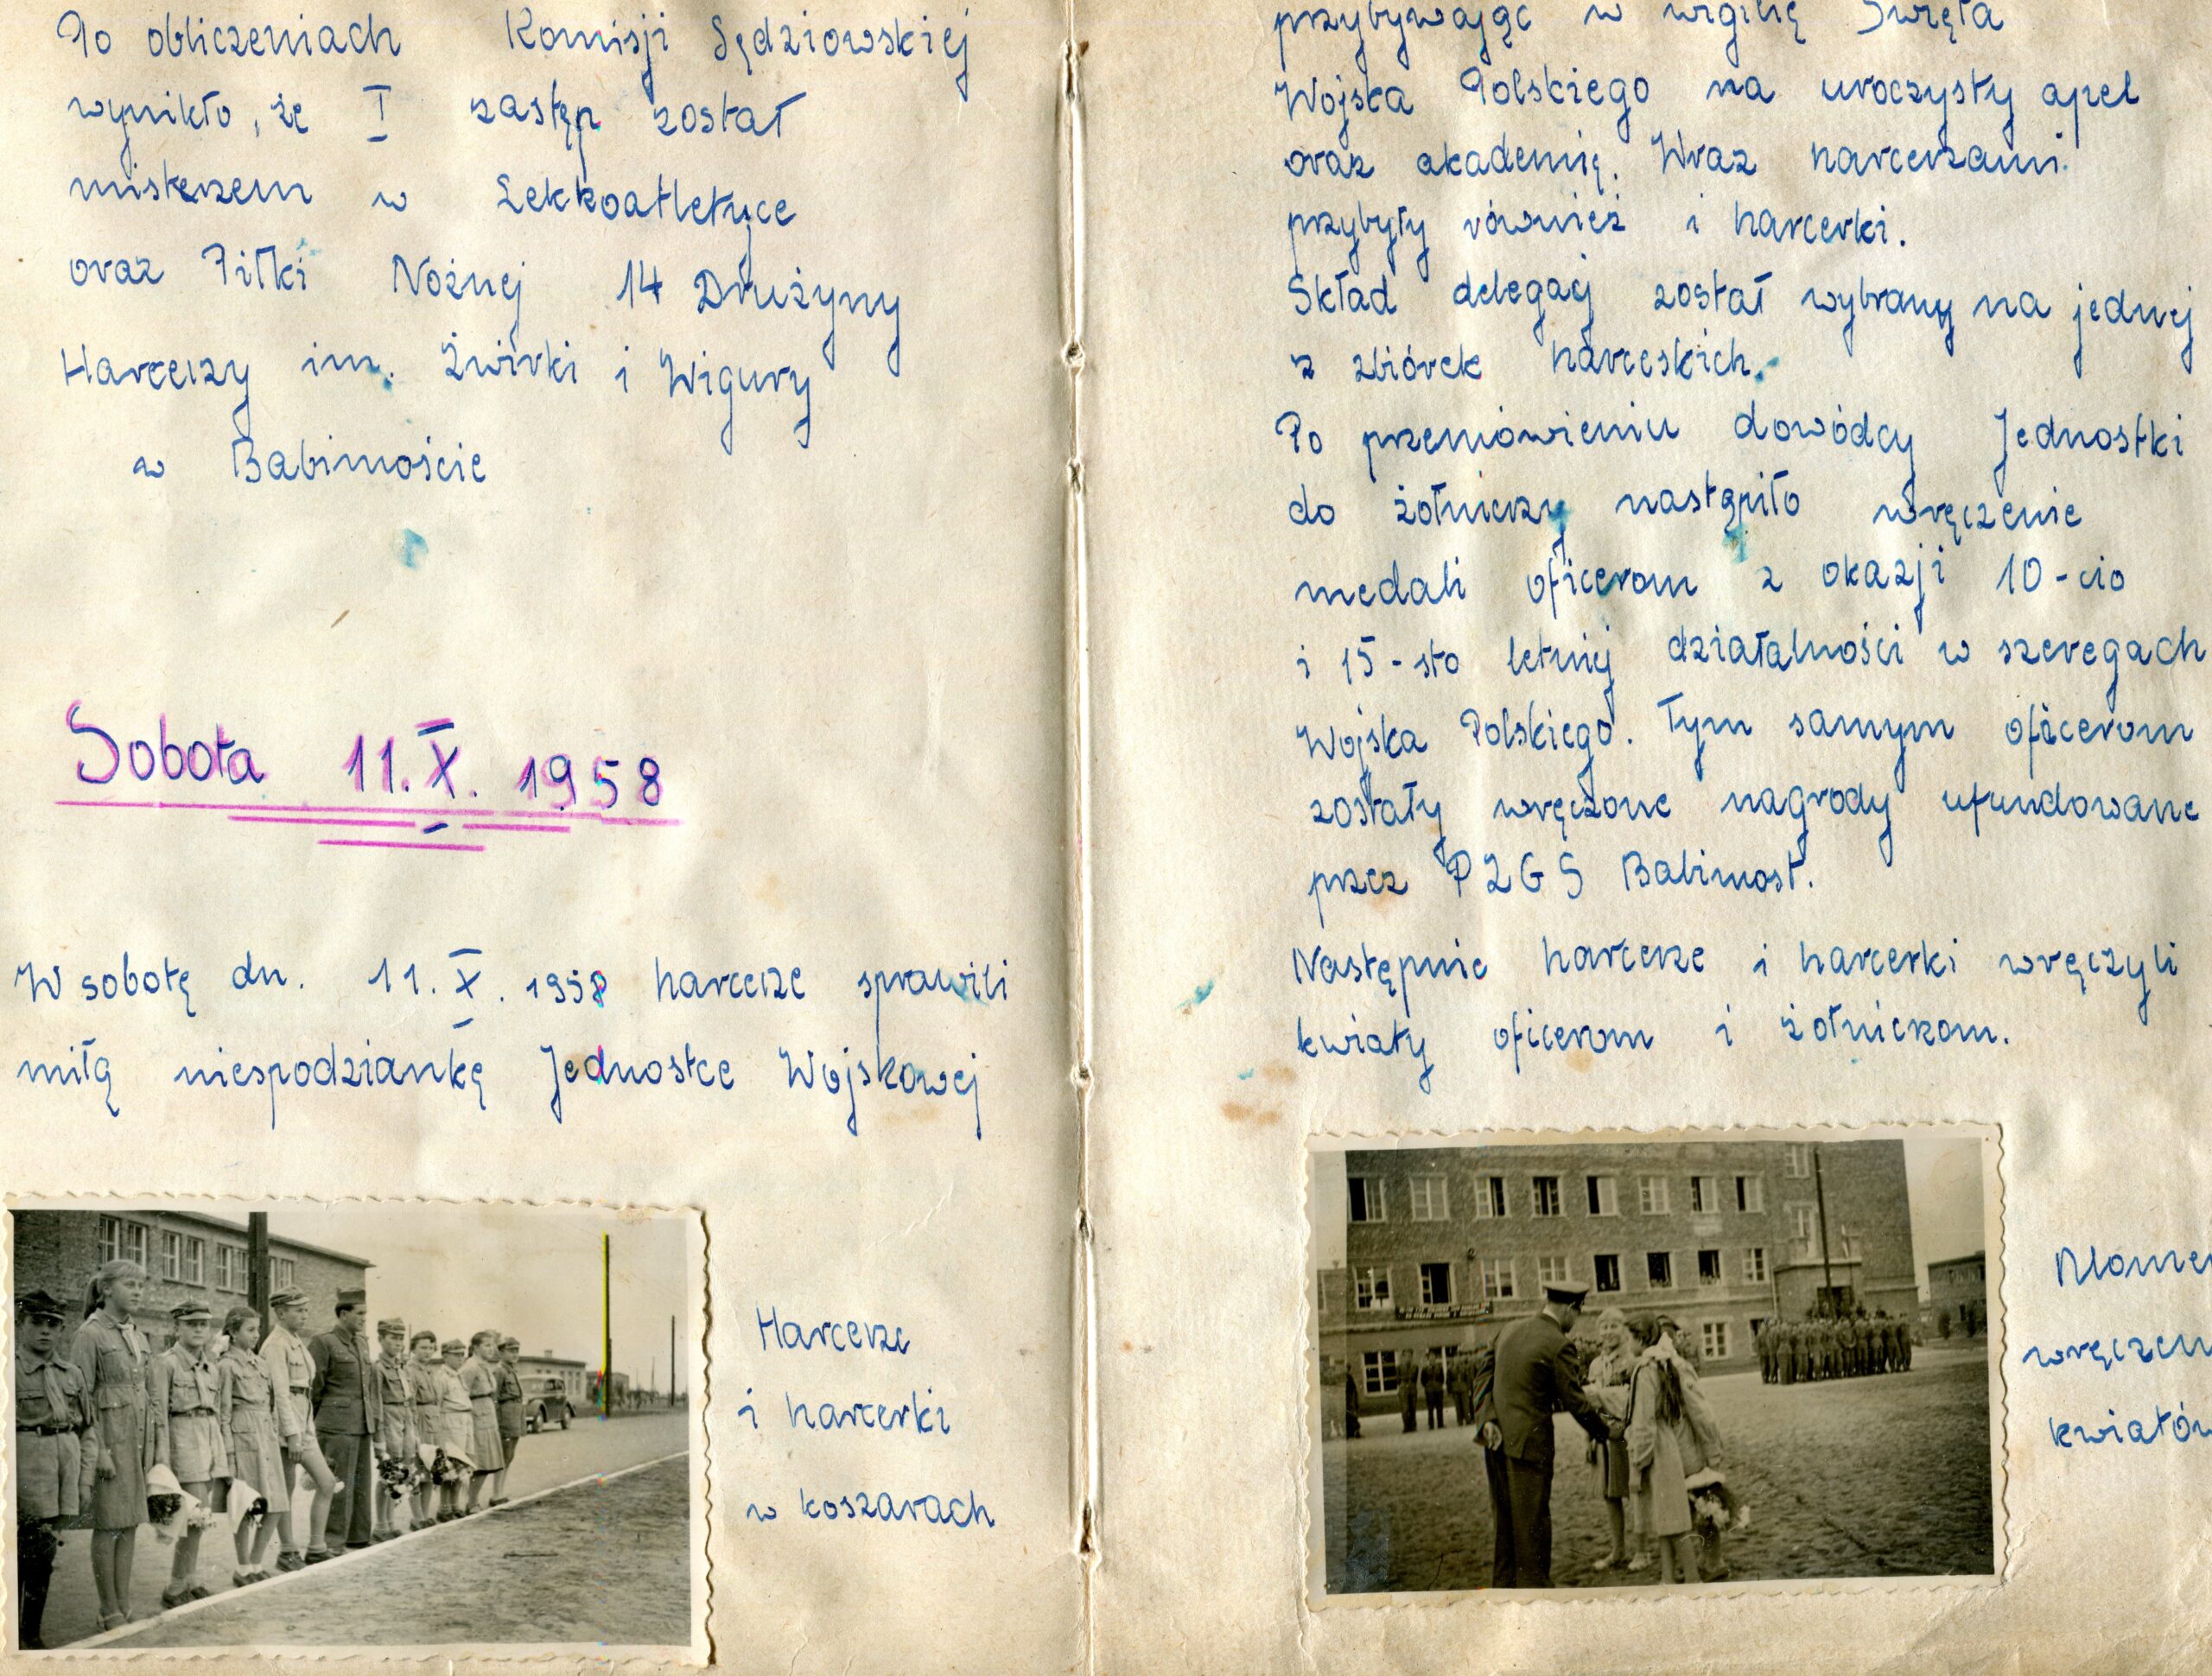 Po obliczeniach Komisji Sędziowskiej
wynikło, że I zastęp został
mistrzem w Lekkoatletyce
oraz Piłki Nożnej 14 Drużyny
Harcerzy im. Żwirki i Wigury
w Babimoście
Sobota 11.X.1958
W sobotę dn. 11.X.1958 harcerze sprawili
miłą niespodziankę Jednostce Wojskowej
Harcerze
i harcerki
w koszarach
przybywając w wigilię Święta
Wojska Polskiego na uroczysty apel
oraz akademię. Wraz harcerzami
przybyły również i harcerki.
Skład delegacj został wybrany na jednej
z zbiórek harceskich.
Po przemówieniu dowódcy Jednostki
do żołnierzy nastąpiło wręczenie
medali oficerom z okazji 10-cio
i 15-sto letniej działalności w szeregach
Wojska Polskiego. Tym samym oficerom
zostały wręczone nagrody ufundowane
przez PZGS Babimost.
Następnie harcerze i harcerki wręczyli
kwiaty oficerom i żołnierzom.
Momen
wręczen
kwiatów